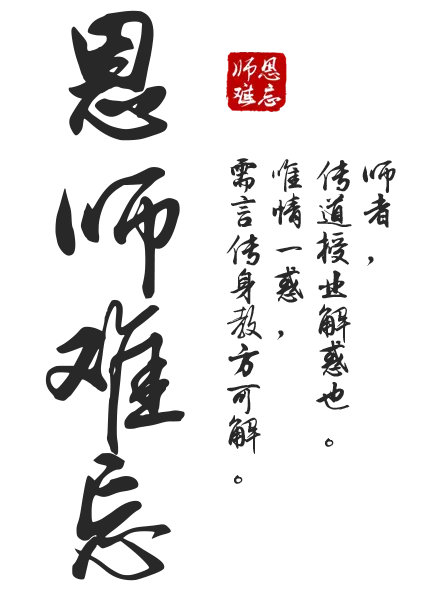 恩师难忘
师恩难忘
师者，
传道授业解惑也。
唯情一惑，
需言传身教方可解。